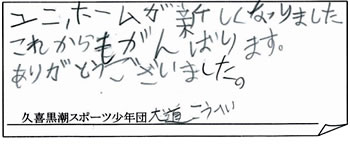 ユニ,ホームが新しくなりました
これからもがんばります。
ありがとうございました。
久喜黒潮スポーツ少年団 大道 こうへい